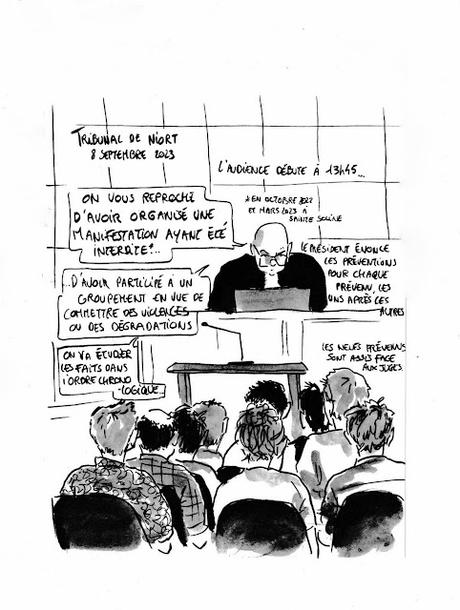 TRIBUNAL DE NIORT
8 SEPTEMBRE 2023
L'AUDIENCE DÉBUTE À 13H45...
ON VOUS REPROCHE
D'AVOIR ORGANISÉ UNE
MANIFESTATION AYANT ÉTÉ
INTERDITE*...
*EN OCTOBRE 2022
ET MARS 2023 À
SAINTE SOLINE
LE PRÉSIDENT ÉNONCE
LES PRÉVENTIONS
POUR CHAQUE
PRÉVENU, LES
UNS APRÈS LES
AUTRES
...D'AVOIR PARTICIPÉ À UN
GROUPEMENT EN VUE DE
COMMETTRE DES VIOLENCES
OU DES DÉGRADATIONS
ON VA ÉTUDIER
LES FAITS DANS
L'ORDRE CHRONO
-LOGIQUE
LES NEUFS PRÉVENUS
SONT ASSIS FACE
AUX JUGES.